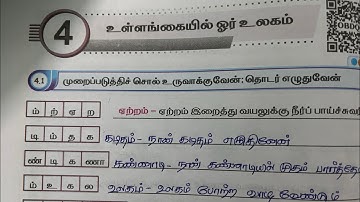 4
உள்ளங்கையில் ஓர் உலகம்
4.1 முறைப்படுத்திச் சொல் உருவாக்குவேன்; தொடர் எழுதுவேன்
ம் ற் ஏ ற ஏற்றம் – ஏற்றம் இறைத்து வயலுக்கு நீர்ப் பாய்ச்சுவர்
டி ம் த க கடிதம் - நான் கடிதம் எழுதினேன்
ண் டி க ணா கண்ணாடி - நான் கண்ணாடியில் முகம் பார்த்தே
ம் உ க ல உலகம் - உலகம் போற்ற வாழ வேண்டும்